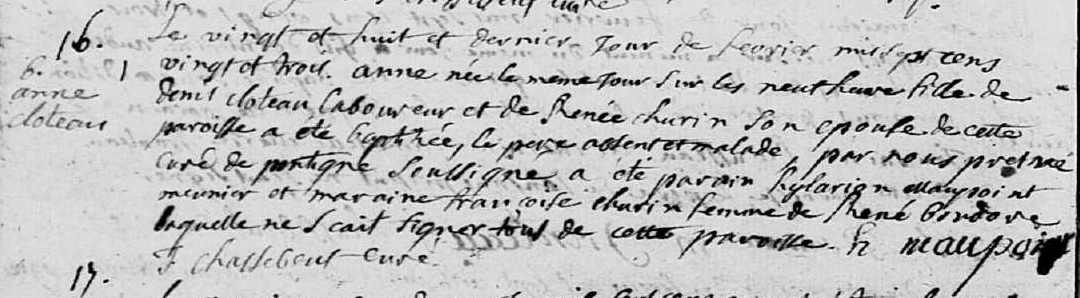 16.
b.
anne
cloteau
Le vingt et huit et dernier Jour de feovrier mil sept cens
vingt et trois. anne née le meme Jour sur les neuf heure fille de
denis cloteau laboureur et de Renée churin son epouse de cette
paroisse a été baptisée, le pere absent et malade, par nous pretre
curé de pontigné soussigné a été parain hylarion Maupoint
meunier et maraine françoise churin femme de René
laquelle ne scait signer tous de cette paroisse. h maupoint
chassebeuf curé.
17.